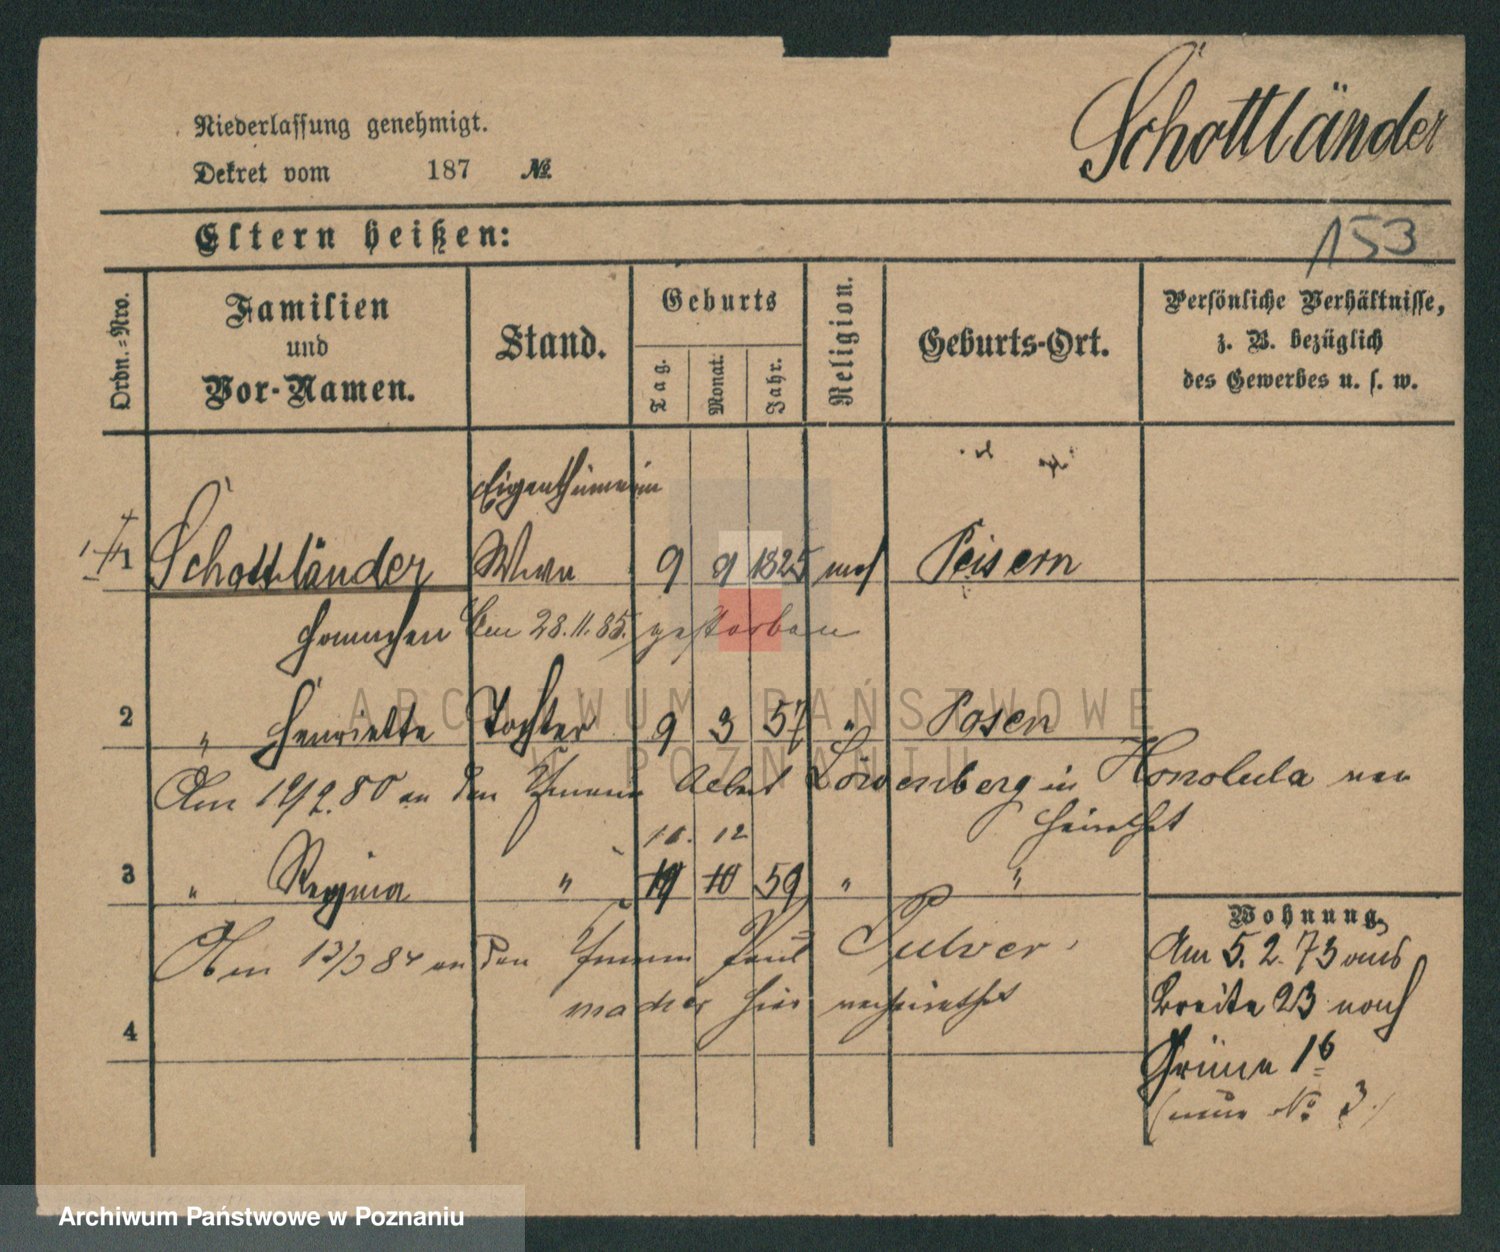 Schottländer
Niederlassung genehmigt.
Dekret vom 187 №
153
Eltern heißen:
Ordn.=Nro.
Familien
und
Vor-Namen.
Stand.
Geburts
Tag.
Monat.
Jahr.
Religion.
Geburts-Ort.
Persönliche Verhältnisse,
z. B. bezüglich
des Gewerbes u. s. w.
Eigenthümerin
1 Schottländer Wwe 9 9 1825 mos Peisern
Hannchen Am 28.11.85. gestorben
2 " Henriette Tochter 9 3 57 " Posen
Am 19/2.80 an den Löwenberg in Honolula ver
heirathet
11. 12
3 " Regina " 19 10 59 " "
Am 13/3 84 an den Paul Pulver
macher hier verheirathet
4
Wohnung
Am 5. 2. 73 aus
Breite 23 nach
Grüne 16
(neue No 3.)
ARCHIWUM PAŃSTWOWE
W POZNANIU
Archiwum Państwowe w Poznaniu